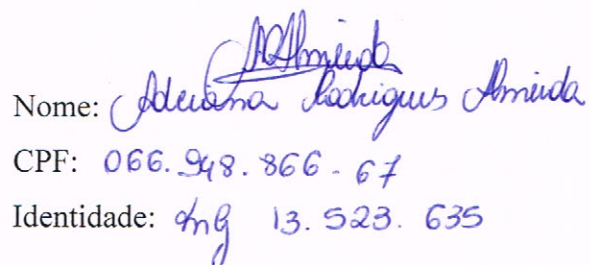 AAlmeida
Nome: Adriana Rodrigues Almeida
CPF: 066.948.866-67
Identidade: MG 13.523.635